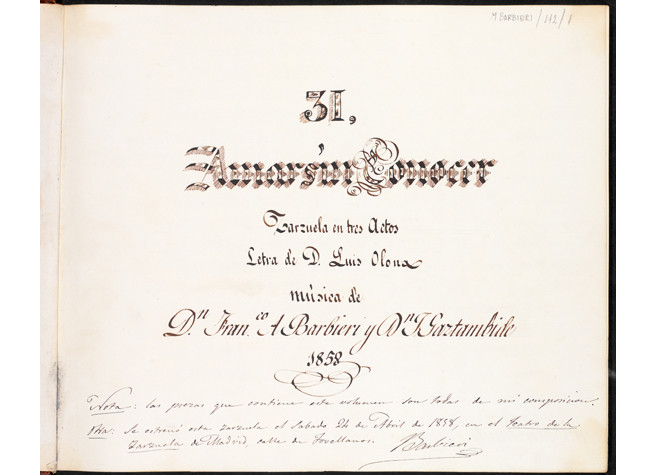 M BARBIERI/112/1
31,
Amar sin Conocer
Zarzuela en tres Actos
Letra de D. Luis Olona
música de
D.n Fran.co A Barbieri y D.n J Gaztambide
1858
Nota: las piezas que contiene este volumen son todas de mi composicion.
Otra: Se estrenó esta zarzuela el sabado 24 de Abril de 1858, en el Teatro de la
Zarzuela de Madrid, calle de Jovellanos. Barbieri